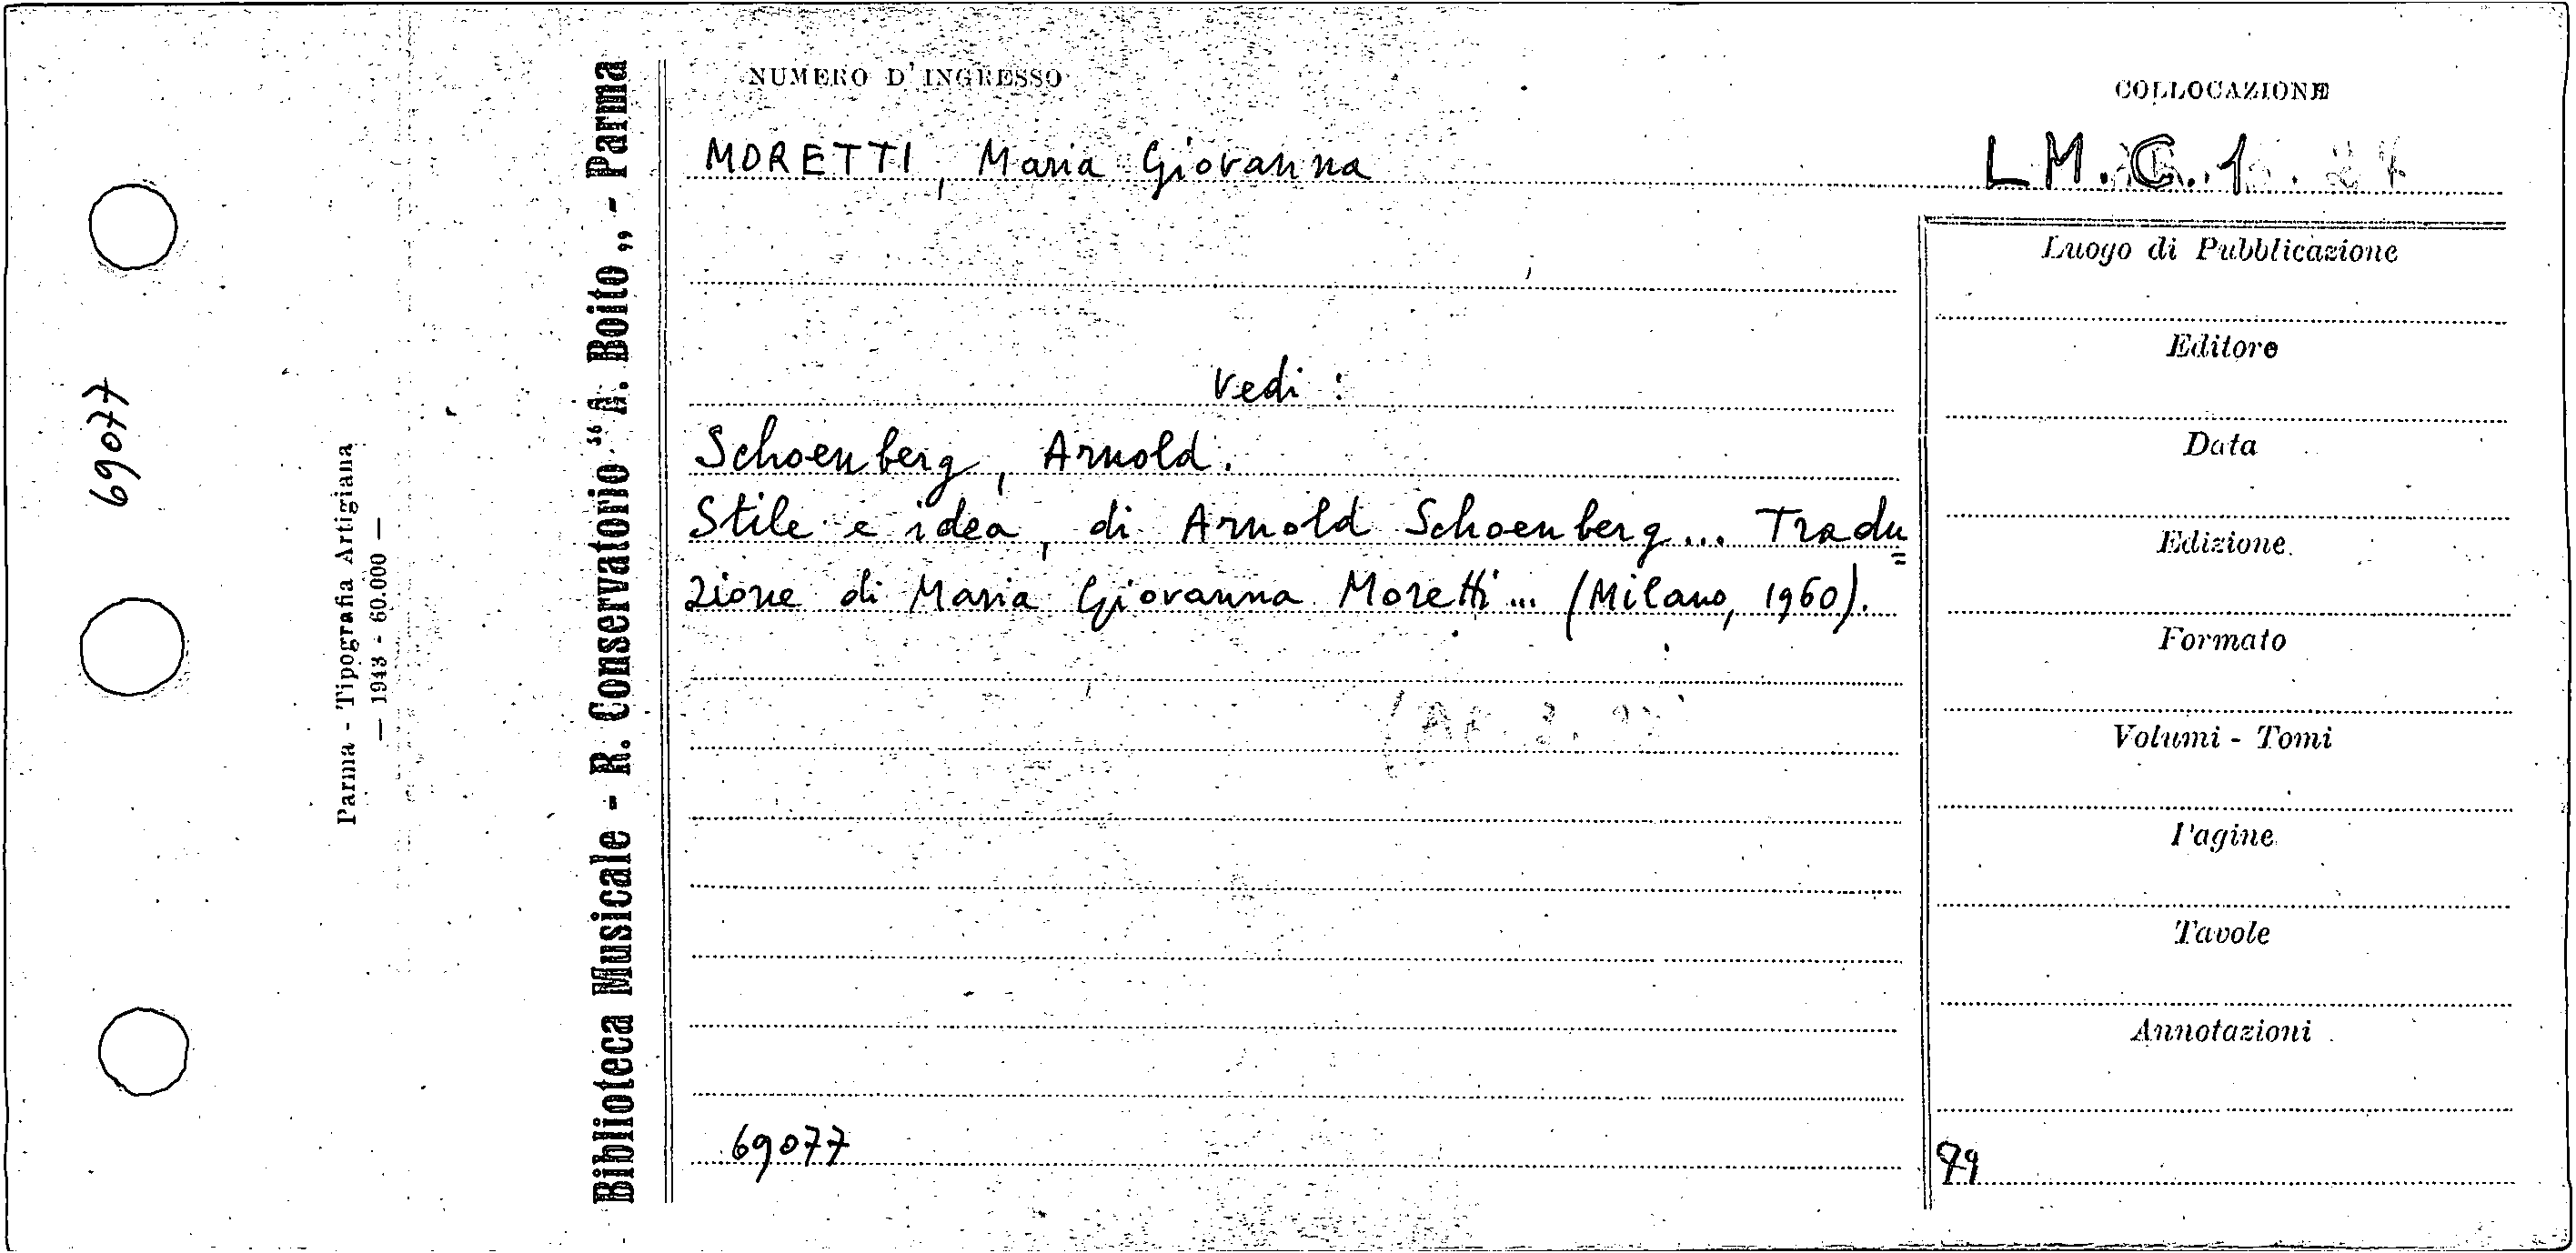 69077
Parma - Tipografia Artigiana
— 1943 - 60.000 —
Biblioteca Musicale - R. Conservatorio "A. Boito„ - Parma
NUMERO D'INGRESSO
COLLOCAZIONE
MORETTI, Maria Giovanna
LM.C.1
vedi :
Schoenberg, Arnold.
Stile e idea, di Arnold Schoenberg... Tradu=
zione di Maria Giovanna Moretti... (Milano, 1960).
69077
Luogo di Pubblicazione
Editore
Data
Edizione
Formato
Volumi - Tomi
Pagine
Tavole
Annotazioni